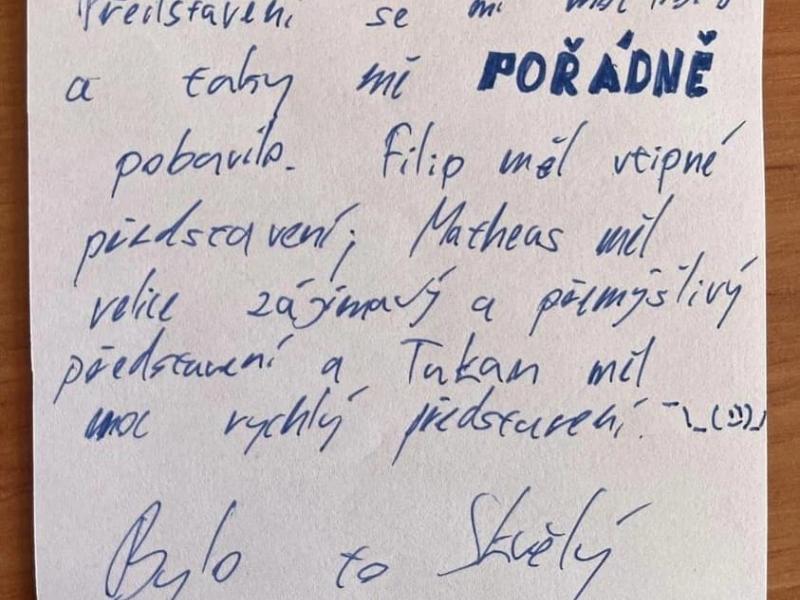 Představení se mi
a taky mě POŘÁDNĚ
pobavilo. Filip měl vtipné
představení; Matheas měl
velice zájímavý a přemýšlivý
představení a Tukan měl
moc rychlý představení. ¯\_(ツ)_/
Bylo to Skvělý